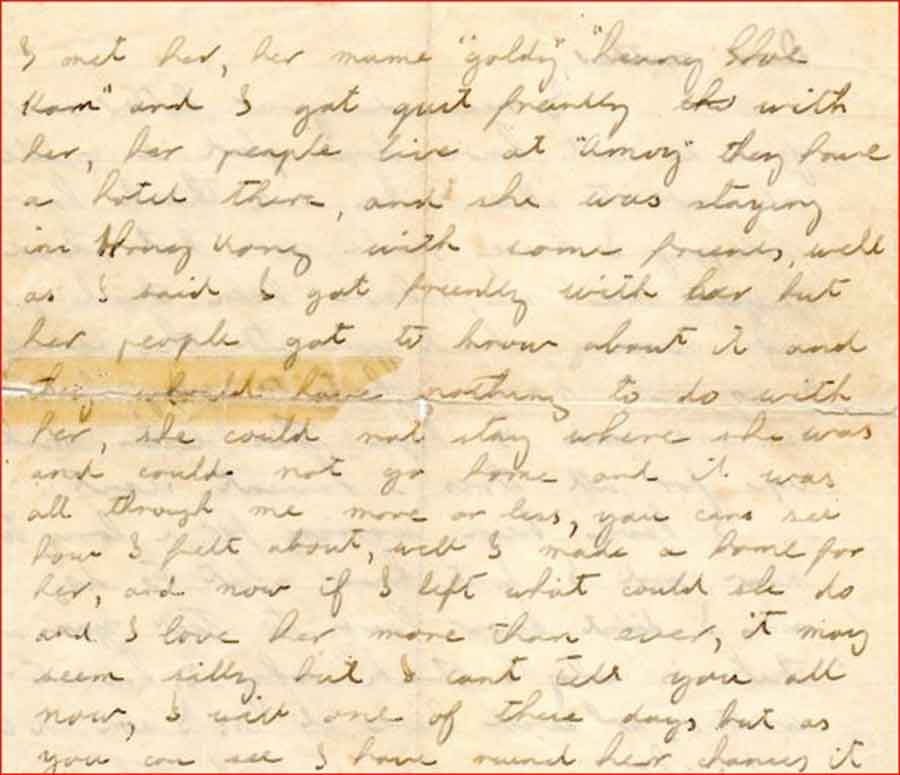 I met her, her mame "goldy" "heung Shue
Kam" and I got quit freindly with
her, her people live at "Amoy" they have
a hotel there, and she was staying
in Hong Kong with some freinds, well
as I said I got freindly with her but
her people got to know about it and
they whould have nothing to do with
her, she could not stay where she was
and could not go home and it was
all through me more or less, you can see
how I felt about, well I made a home for
her, and now if I left what could she do
and I love her more than ever, it may
seem silly but I cant tell you all
now, I will one of these days but as
you can see I have ruind her chances it